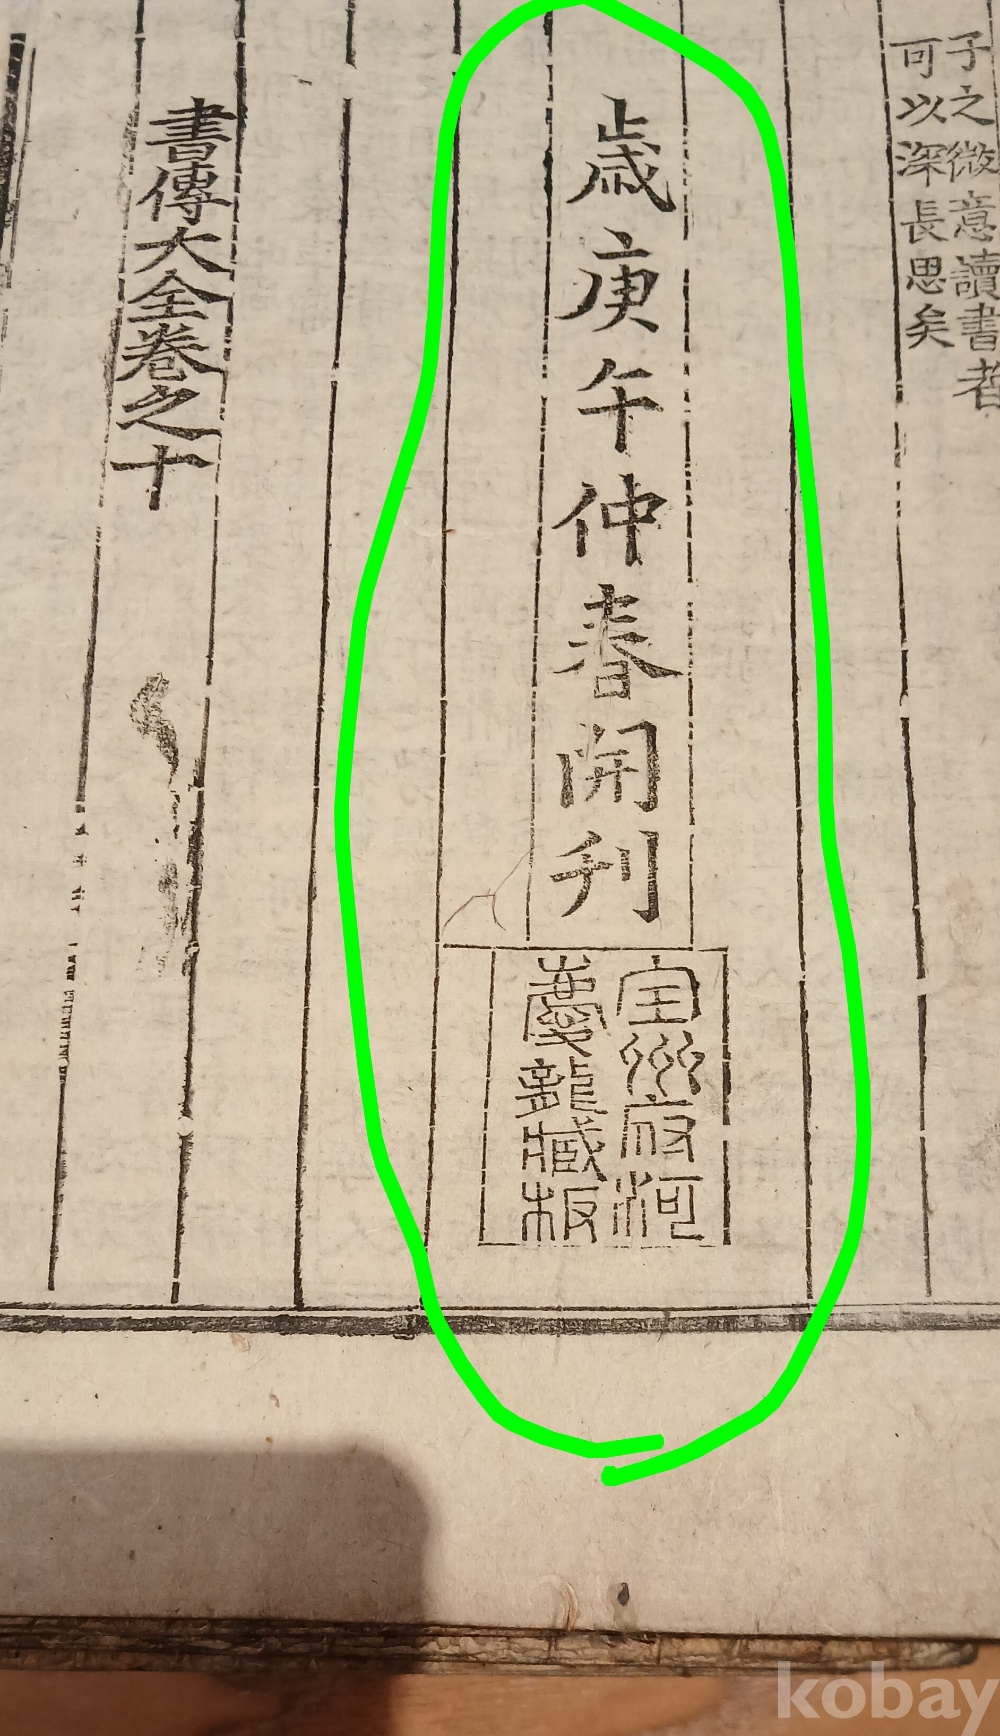 子之微意讀書者
可以深長思矣
歲庚午仲春開刊
全州府河
慶龍藏板
書傳大全卷之十
kobay